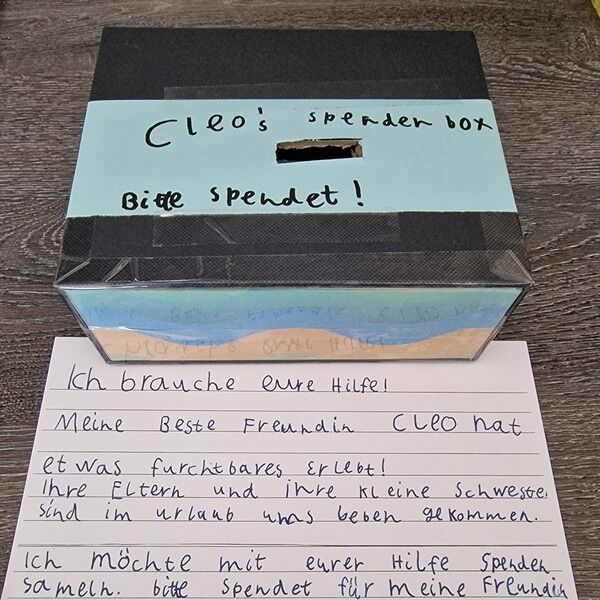 Cleo's spenden box
Bitte spendet!
Ich brauche eure Hilfe!
Meine Beste Freundin Cleo hat
etwas furchtbares erlebt!
Ihre Eltern und ihre kleine Schwester
sind im urlaub ums beben gekommen.
Ich möchte mit eurer Hilfe Spenden
sameln. bitte spendet für meine Freundin